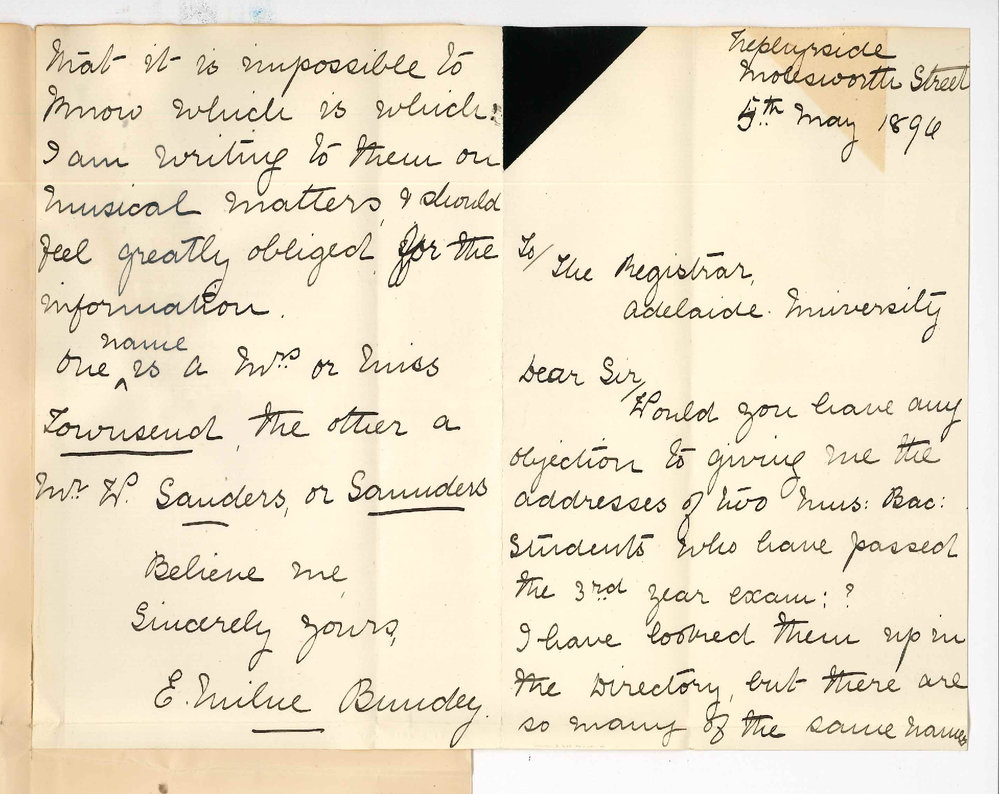 Molesworth Street
5th May 1896
To/
The Registrar,
Adelaide University
Dear Sir/
Would you have any
objection to giving me the
addresses of two Mus: Bac:
Students who have passed
the 3rd year exam: ?
I have looked them up in
the Directory, but there are
so many of the same names
that it is impossible to
know which is which.
I am writing to them on
musical matters, & should
feel greatly obliged for the
information.
One name is a Mrs or Miss
Townsend, the other a
Mr W. Sanders, or Saunders
Believe me
Sincerely yours,
E. Milne Bundey.